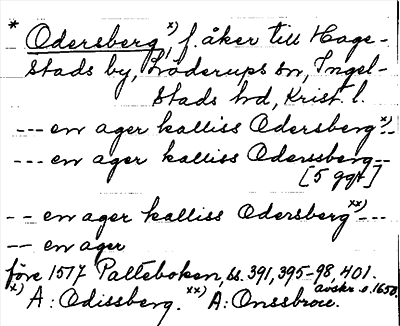 * Odersberg x), f. åker till Hage-
stads by, Löderups sn, Ingel-
stads hd, Krist. l.
--- en ager kalliss Odersberg x)--
--- en ager kalliss Oderssberg--
[5 ggr]
-- en ager kalliss Odersberg xx)---
-- en ager
före 1517 Palteboken, ss. 391, 395-98, 401.
avskr. o. 1650.
x) A: Odissberg. xx) A: Onssbrow.